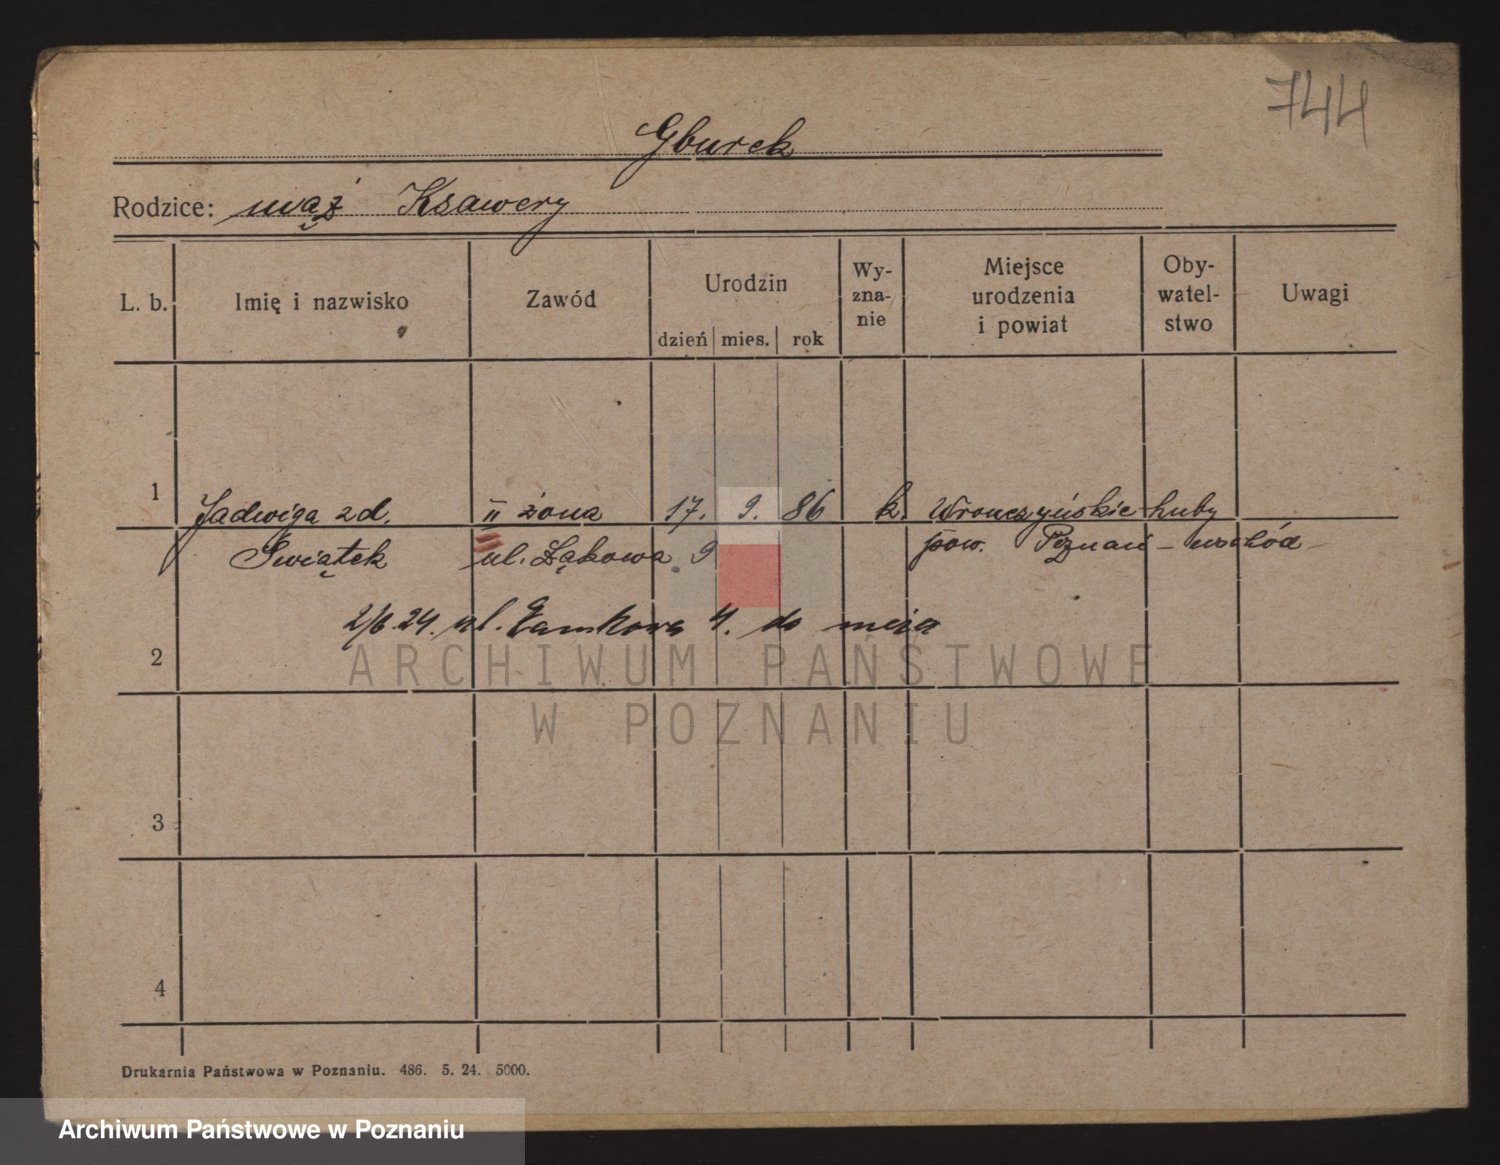 744
Gburek
Rodzice: mąż Ksawery
L. b. Imię i nazwisko Zawód Urodzin dzień mies. rok Wy-zna-nie Miejsce urodzenia i powiat Oby-watel-stwo Uwagi
1 Jadwiga z d. II żona 17. 9. 86 k. Wronczyńskie huby
Świątek ul. Łąkowa 9 pow. Poznań - wschód -
2/6.24. ul. Zamkowa 4. do męża
2
3
4
Drukarnia Państwowa w Poznaniu. 486. 5. 24. 5000.
ARCHIWUM PAŃSTWOWE
W POZNANIU
Archiwum Państwowe w Poznaniu